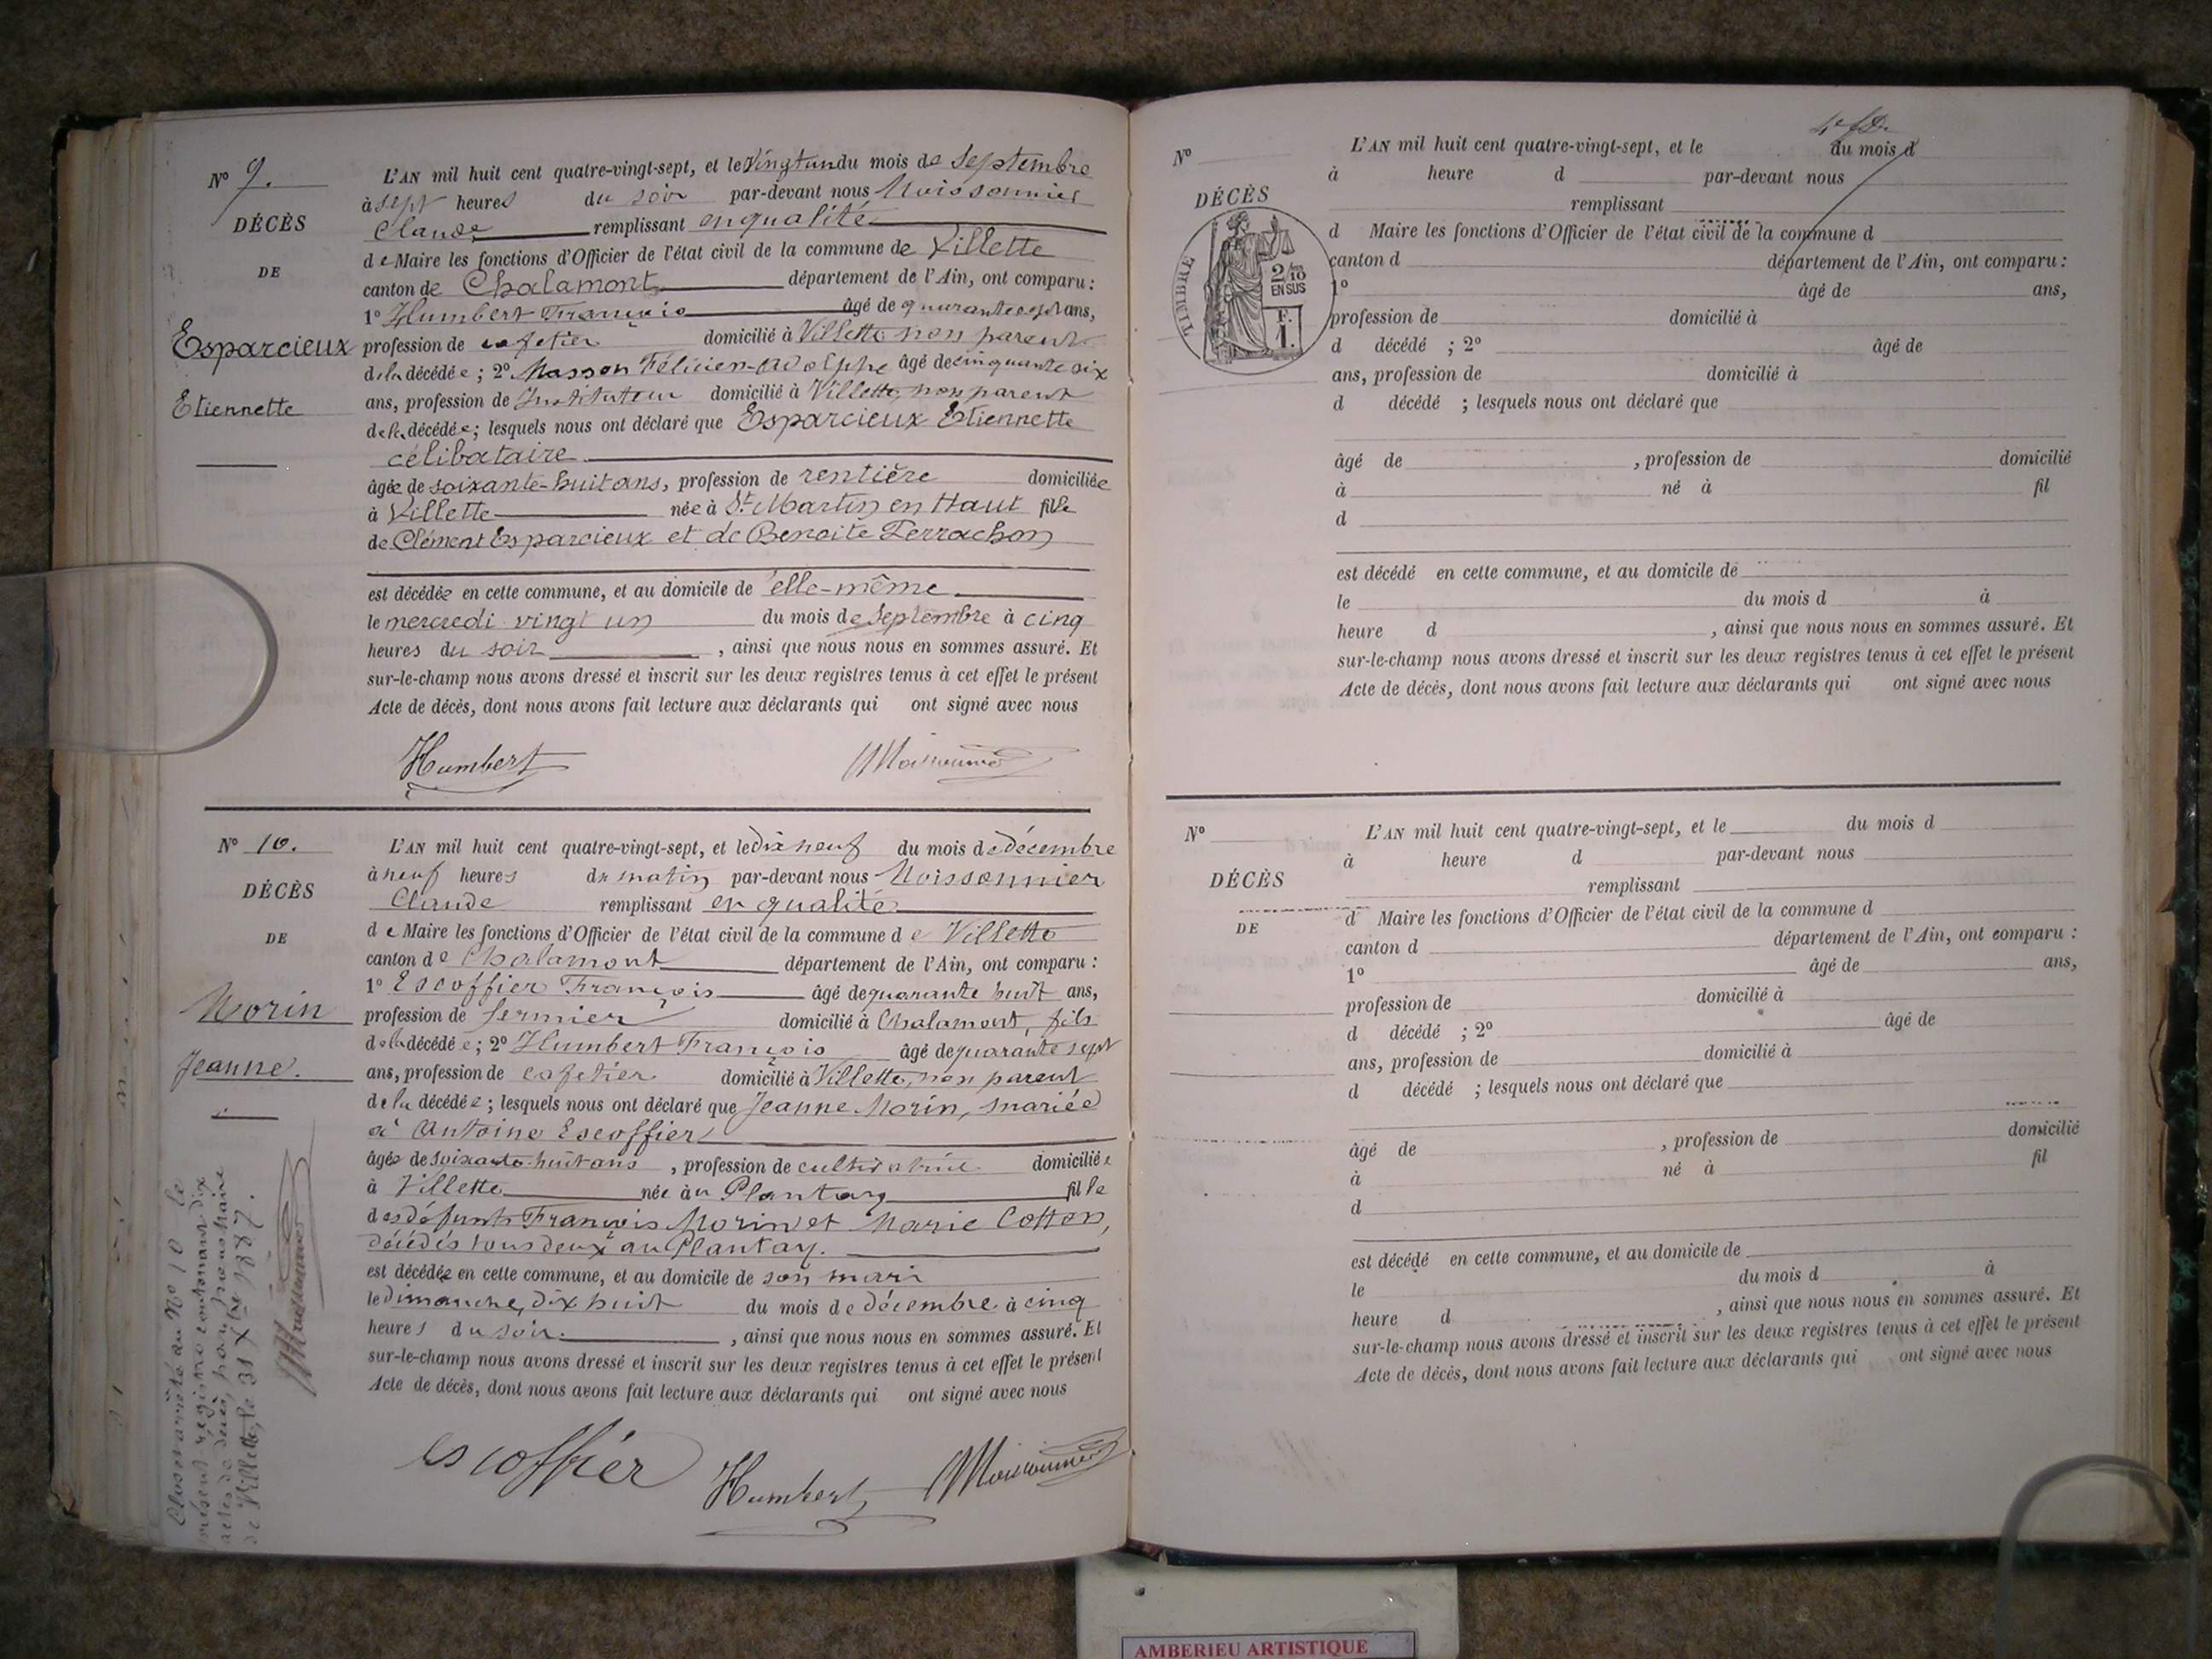 N° 9.
DÉCÈS
DE
Esparcieux
Etiennette
L'AN mil huit cent quatre-vingt-sept, et le vingt un du mois de Septembre
à sept heures du soir par-devant nous Moissonnier
Claude remplissant en qualité
de Maire les fonctions d'Officier de l'état civil de la commune de Villette
canton de Chalamont département de l'Ain, ont comparu :
1° Humbert François âgé de quarante sept ans,
profession de cafetier domicilié à Villette non parent
de la décédée ; 2° Masson Félicien-Adolphe âgé de cinquante six
ans, profession de Instituteur domicilié à Villette, non parent
de la décédée ; lesquels nous ont déclaré que Esparcieux Etiennette
célibataire
âgée de soixante-huit ans, profession de rentière domiciliée
à Villette née à St Martin en Haut fille
de Clément Esparcieux et de Benoite Terrachon
est décédée en cette commune, et au domicile de elle-même
le mercredi vingt un du mois de Septembre à cinq
heures du soir, ainsi que nous nous en sommes assuré. Et
sur-le-champ nous avons dressé et inscrit sur les deux registres tenus à cet effet le présent
Acte de décès, dont nous avons fait lecture aux déclarants qui ont signé avec nous
Humbert Moissonnier
N° 10.
DÉCÈS
DE
Morin
Jeanne.
L'AN mil huit cent quatre-vingt-sept, et le dix neuf du mois de décembre
à neuf heures du matin par-devant nous Moissonnier
Claude remplissant en qualité
de Maire les fonctions d'Officier de l'état civil de la commune de Villette
canton de Chalamont département de l'Ain, ont comparu :
1° Escoffier François âgé de quarante huit ans,
profession de fermier domicilié à Chalamont, fils
de la décédée ; 2° Humbert François âgé de quarante sept
ans, profession de cafetier domicilié à Villette, non parent
de la décédée ; lesquels nous ont déclaré que Jeanne Morin, mariée
à Antoine Escoffier
âgée de soixante-huit ans, profession de cultivatrice domiciliée
à Villette née au Plantay fille
des défunts François Morin et Marie Cotton,
décédés tous deux au Plantay.
est décédée en cette commune, et au domicile de son mari
le dimanche, dix huit du mois de décembre à cinq
heures du soir, ainsi que nous nous en sommes assuré. Et
sur-le-champ nous avons dressé et inscrit sur les deux registres tenus à cet effet le présent
Acte de décès, dont nous avons fait lecture aux déclarants qui ont signé avec nous
escoffier Humbert Moissonnier
Clos et arrêté au N° 10 le
présent registre contenant dix
actes de décès, par nous maire
de Villette, le 31 Xbre 1887.
Moissonnier
N°
DÉCÈS
TIMBRE
2/10
EN SUS
F.
1.
L'AN mil huit cent quatre-vingt-sept, et le du mois d
à heure d par-devant nous
remplissant
d Maire les fonctions d'Officier de l'état civil de la commune d
canton d département de l'Ain, ont comparu :
1° âgé de ans,
profession de domicilié à
d décédé ; 2° âgé de
ans, profession de domicilié à
d décédé ; lesquels nous ont déclaré que
âgé de , profession de domicilié
à né à fil
d
est décédé en cette commune, et au domicile de
le du mois d à
heure d , ainsi que nous nous en sommes assuré. Et
sur-le-champ nous avons dressé et inscrit sur les deux registres tenus à cet effet le présent
Acte de décès, dont nous avons fait lecture aux déclarants qui ont signé avec nous
N°
DÉCÈS
DE
L'AN mil huit cent quatre-vingt-sept, et le du mois d
à heure d par-devant nous
remplissant
d Maire les fonctions d'Officier de l'état civil de la commune d
canton d département de l'Ain, ont comparu :
1° âgé de ans,
profession de domicilié à
d décédé ; 2° âgé de
ans, profession de domicilié à
d décédé ; lesquels nous ont déclaré que
âgé de , profession de domicilié
à né à fil
d
est décédé en cette commune, et au domicile de
le du mois d à
heure d , ainsi que nous nous en sommes assuré. Et
sur-le-champ nous avons dressé et inscrit sur les deux registres tenus à cet effet le présent
Acte de décès, dont nous avons fait lecture aux déclarants qui ont signé avec nous
AMBERIEU ARTISTIQUE